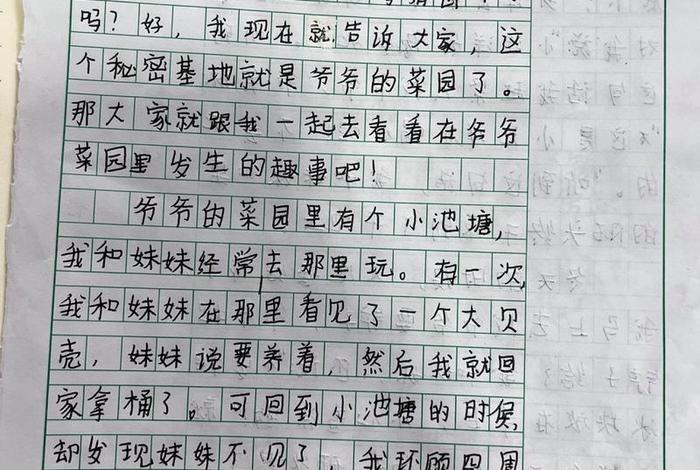 吗？好，我现在就告诉大家，这
个秘密基地就是爷爷的菜园了。
那大家就跟我一起去看看在爷爷
菜园里发生的趣事吧！
爷爷的菜园里有个小池塘，
我和妹妹经常去那里玩。有一次，
我和妹妹在那里看见了一个大贝
壳，妹妹说要养着，然后我就回
家拿桶了。可回到小池塘的时候，
却发现妹妹不见了，我环顾四周